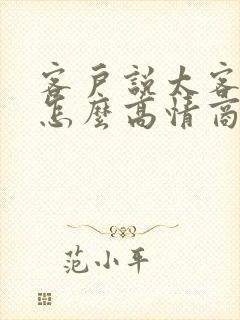 客戶說太客
怎麼高情商
范小平